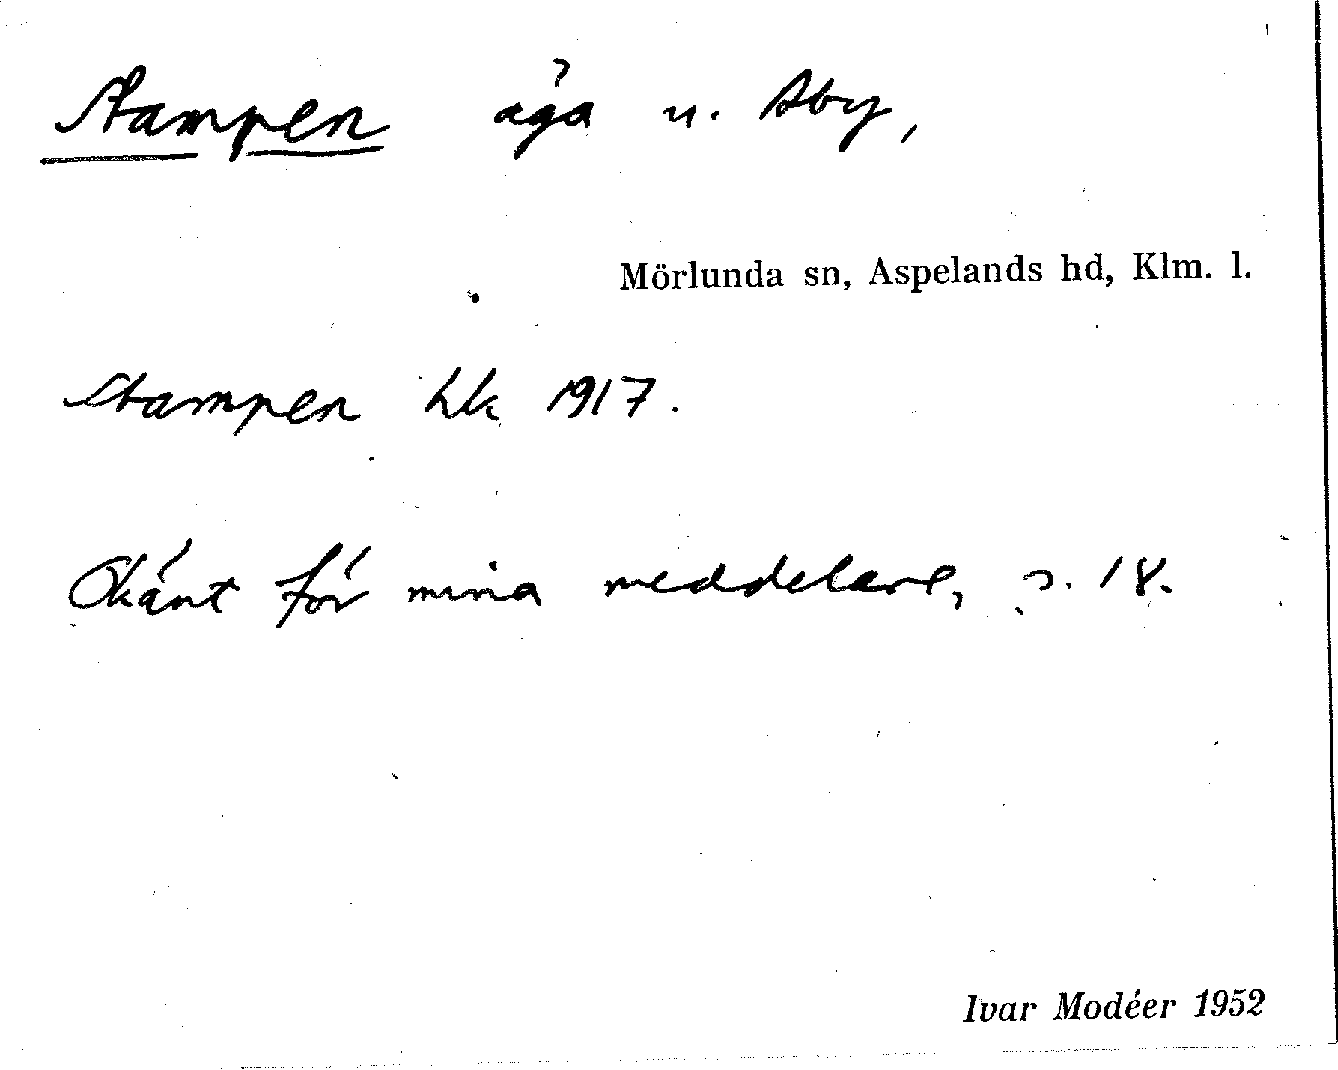 Stampen äga u. Åby,
Mörlunda sn, Aspelands hd, Klm. l.
Stampen hk 1917.
Okänt för mina meddelare, s. 18.
Ivar Modéer 1952